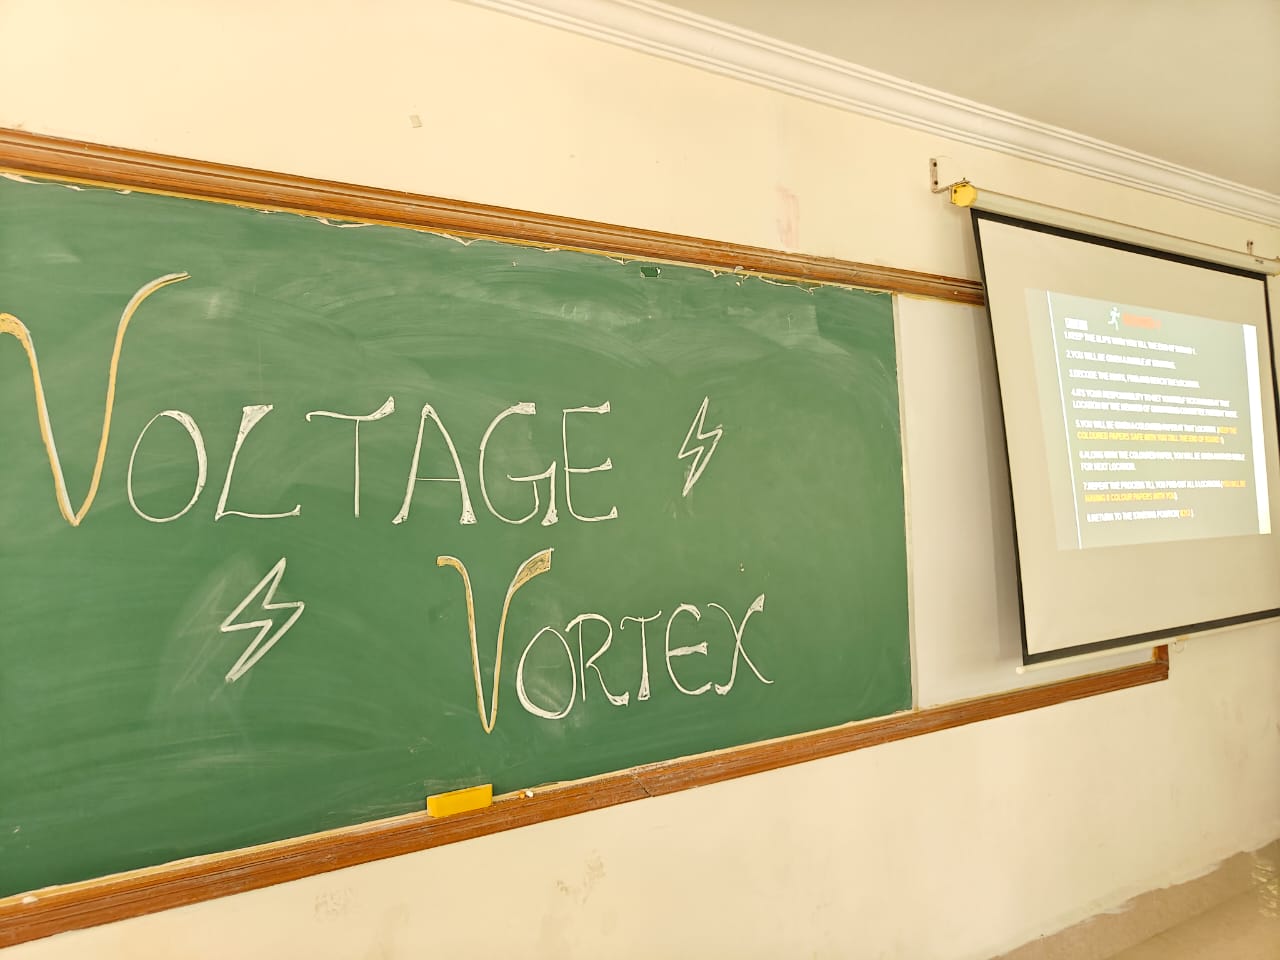 VOLTAGE
VORTEX
1.KEEP THE SLIPS WITH YOU TILL THE END OF ROUND 1.
2.YOU WILL BE GIVEN A RIDDLE AT
3.DECODE THE RIDDLE, FIND AND REACH THE LOCATION.
4.ITS YOUR RESPONSIBILITY TO GET YOURSELF AT THAT
LOCATION BY THE MEMBER OF
5.YOU WILL BE GIVEN A COLOURED PAPER AT THAT LOCATION (KEEP THE
COLOURED PAPERS SAFE WITH YOU TILL THE END OF ROUND 1).
6.ALONG WITH THE COLOURED PAPER, YOU WILL BE GIVEN ANOTHER RIDDLE
FOR NEXT LOCATION.
7.REPEAT THE PROCESS TILL YOU FIND OUT ALL LOCATIONS (YOU WILL BE
HAVING COLOUR PAPERS WITH YOU)
8.RETURN TO THE STARTING POSITION